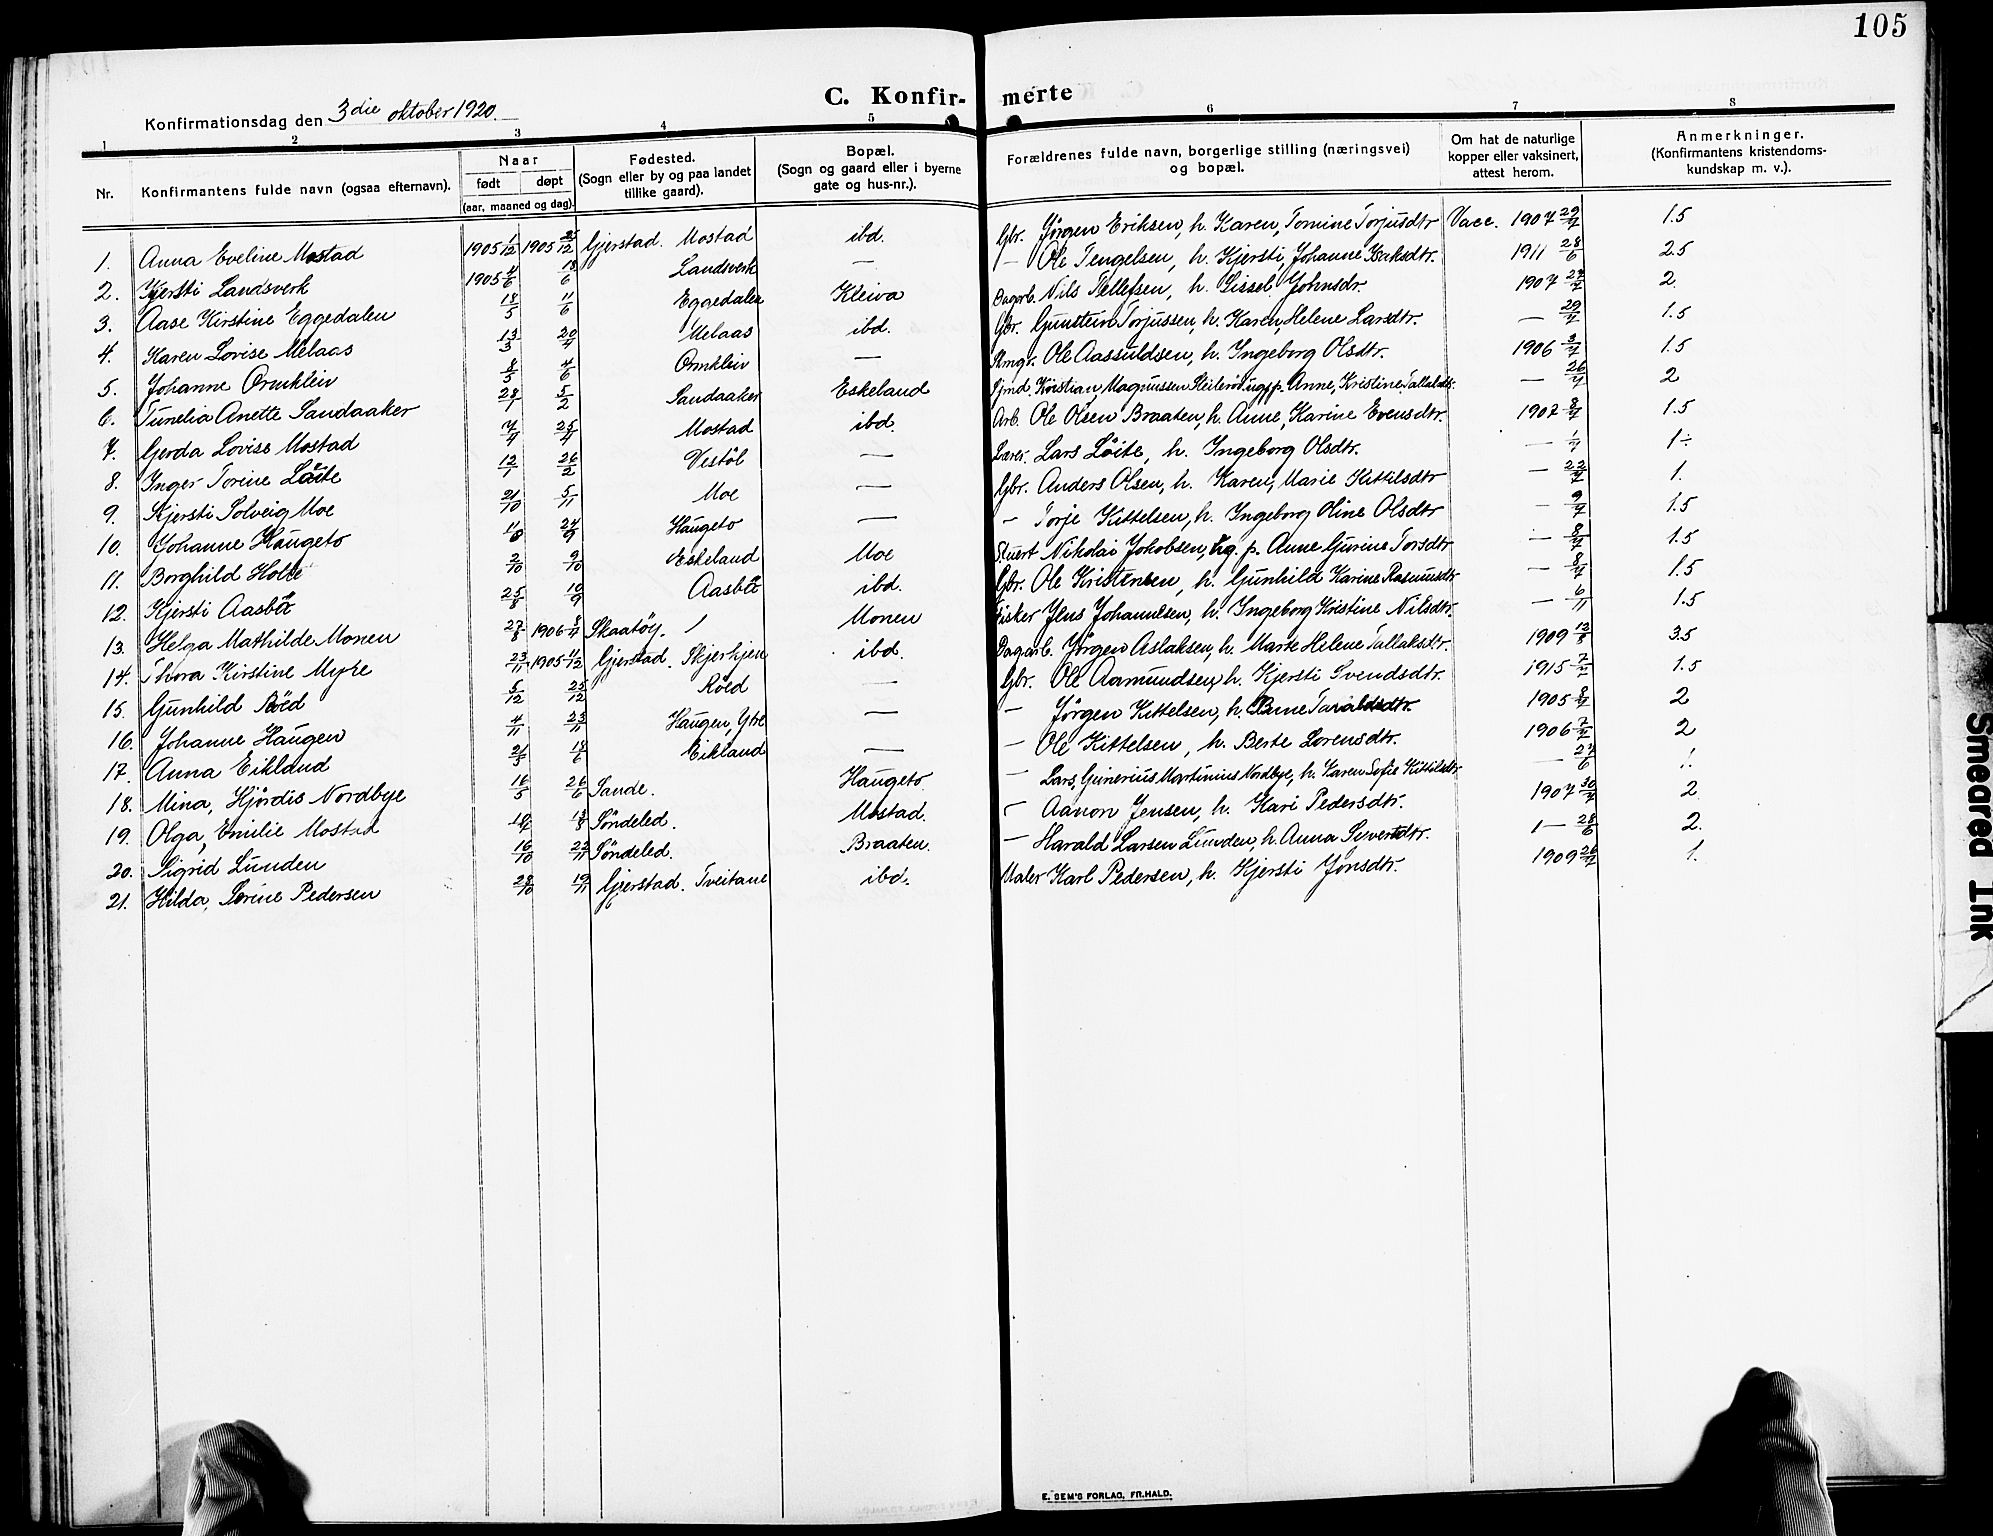 105
C. Konfirmerte
Konfirmationsdag den 3die oktober 1920.
1 2 3 4 5 6 7 8
Nr. Konfirmantens fulde navn (ogsaa efternavn). Naar født døpt (aar, maaned og dag). Fødested. (Sogn eller by og paa landet tillike gaard). Bopæl. (Sogn og gaard eller i byerne gate og hus-nr.). Forældrenes fulde navn, borgerlige stilling (næringsvei) og bopæl. Om hat de naturlige kopper eller vaksinert, attest herom. Anmerkninger. (Konfirmantens kristendomskundskap m. v.).
1. Anna Eveline Mostad 1905 1/12 1905 25/12 Gjerstad. Mostad ibd. Gbr. Jørgen Eriksen, h. Karen, Tomine Torjusdtr Vacc. 1907 29/7 1.5
2. Kjersti Landsverk 1905 4/6 18/6 Landsverk — — Ole Tengelsen, h. Kjersti, Johanne Isaksdtr. 1911 28/6 2.5
3. Aase Kirstine Eggedalen 18/5 11/6 Eggedalen Kleiva Dagarb. Nils Tellefsen, h. Sissel Johnsdr. 1907 27/7 2.
4. Karen Lovise Melaas 13/3 20/4 Melaas ibd. Gbr. Gunstein Torjussen, h. Karen, Helene Larsdtr. — 29/7 1.5
5. Johanne Ormklein 8/5 4/6 Ormkleiv — Ole Aasuldsen, h. Ingeborg Olsdtr. 1906 3/7 1.5
6. Tunelia Anette Sandaaker 28/1 5/2 Sandaaker Eskeland Kristian, Magnussen ug. p. Anne, Kristine, — 26/4 2
7. Gerda Lovise Mostad 7/4 25/4 Mostad ibd. Arb. Ole Olsen Braaten, h. Anne, Karine Evensdtr. 1907 8/7 1.5
8. Inger Torine Løite 12/1 26/2 Vestøl — Lærer. Lars Løite, h. Ingeborg Olsdtr. — 1/7 1÷
9. Kjersti Solveig Moe 21/10 5/11 Moe — Gbr. Anders Olsen, h. Karen, Marie Kittilsdtr — 22/7 1.
10. Johanne Haugeto 24/9 Haugeto — — Torje Kittelsen, h. Ingeborg Oline Olsdtr — 9/7 1.5
11. Borghild Holte 2/10 9/10 Eskeland Moe Stuert Nikolai Jokobsen, ug. p. Anne Gurine Torsdtr — 8/7 1.5
12. Kjersti Aasbø 25/8 10/9 Aasbø ibd. Gbr. Ole Kristensen, h. Gunhild Karine Rasmusdtr — 8/7 1.5
13. Helga Mathilde Monen 27/8 1906 8/4 Skaatøy. / Monen Fisker Jens Johannesen, h. Ingeborg Kristine Nilsdtr. — 6/11 1.5
14. Thora Kirstine Myre 23/11 1905 11/12 Gjerstad. Skjerkjen ibd. Dagarb. Jørgen Aslaksen, h. Marte Helene Tallaksdtr. 1909 12/8 3.5
15. Gunhild Røed 5/12 25/12 Røed — Gbr. Ole Aamundsen, h. Kjersti Svendsdtr. 1915 7/7 1.5
16. Johanne Haugen 4/11 23/11 Haugen, Ytre — — Jørgen Kittelsen, h. Anne Taraldsdtr. 1905 8/7 2
17. Anna Eikland 21/5 18/6 Eikland — — Ole Kittelsen, h. Berte Lorensdtr. 1906 7/7 2
18. Mina, Hjørdis Nordbye 16/5 26/6 Sande. Haugeto — Lars, Geinerius Martinius Nordbye, h. Karen Sofie Kittilsdtr — 27/6 1.
19. Olga, Emilie Mostad 13/8 Søndeled. Mostad. — Aanon Jensen, h. Kari Pedersdtr. 1907 30/7 2
20. Sigrid Lunden 16/10 22/11 Søndeled. Braaten. — Harald Larsen Lunden, h. Anna Syvertdtr. — 28/6 2.
21. Hilda, Serine Pedersen 28/10 19/11 Gjerstad. Tveitane ibd. Maler Karl Pedersen, h. Kjersti Jønsdtr. 1909 26/7 1.
E. SEM'S FORLAG, FR.HALD.
Smeared Ink